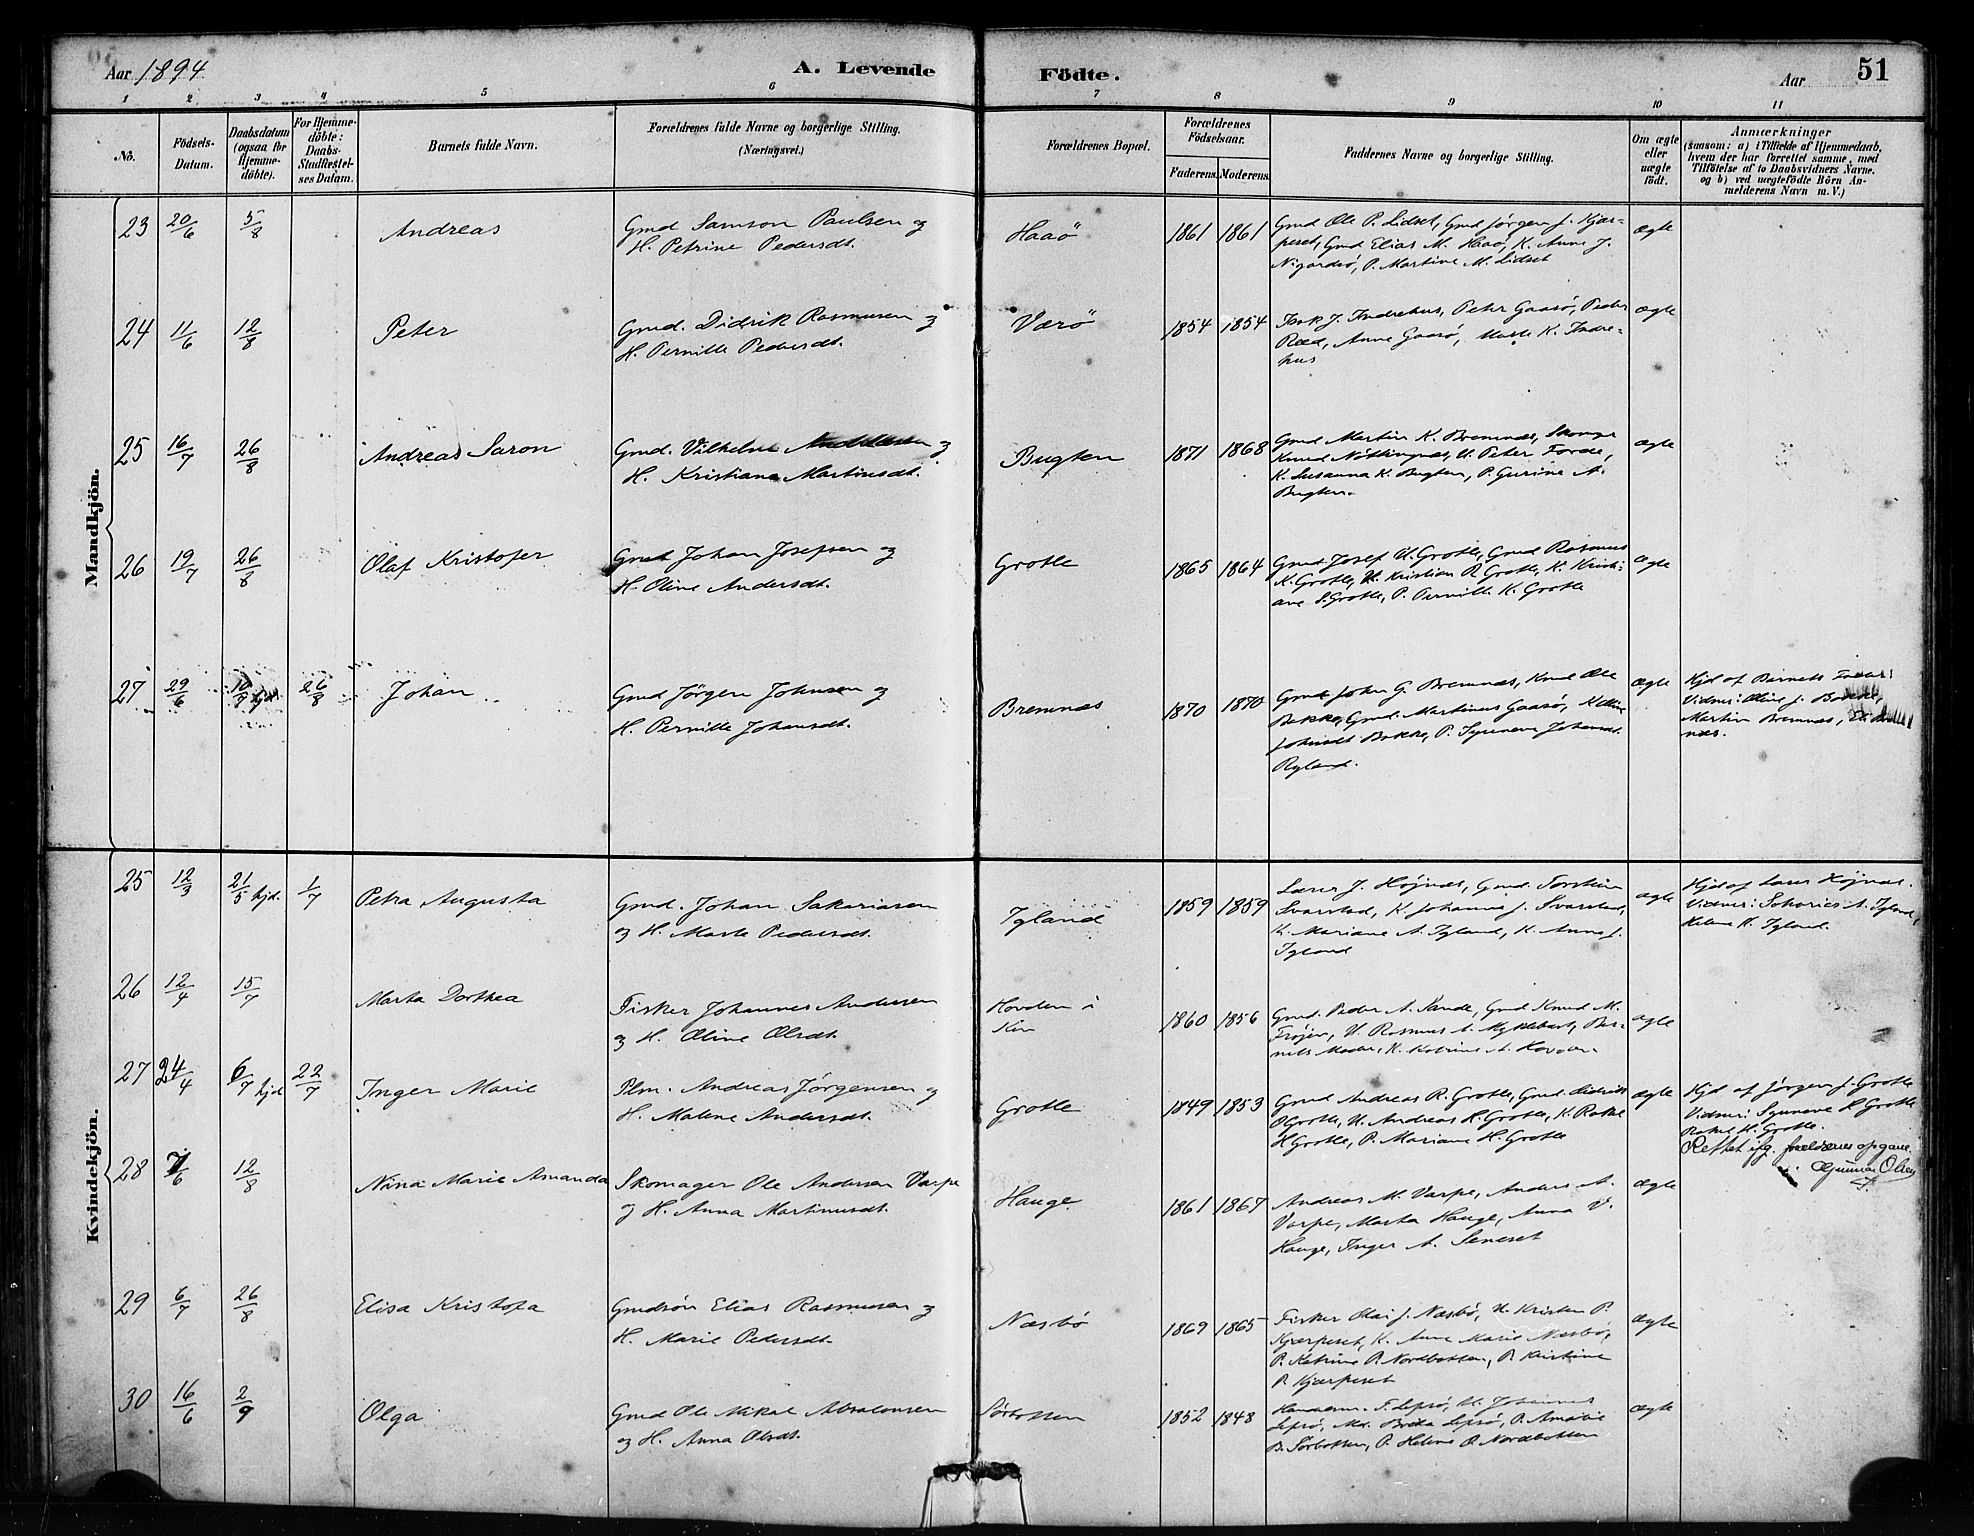 Aar 1894
A. Levende Födte.
Aar 51
1 2 3 4 5 6 7 8 9 10 11
No.
Födsels-
Datum.
Daabsdatum
(ogsaa for
Hjemme-
döbte).
For Hjemme-
döbte:
Daabs-
Stadfæstel-
ses Datum.
Barnets fulde Navn.
Forældrenes fulde Navne og borgerlige Stilling.
(Næringsvei.)
Forældrenes Bopæl.
Forældrenes
Födselsaar.
Faderens. Moderens.
Faddernes Navne og borgerlige Stilling.
Om ægte
eller
uægte
födt.
Anmærkninger
(saasom: a) i Tilfælde af Hjemmedaab,
hvem der har forrettet samme, med
Tilföielse af to Daabsvidners Navne.
og b) ved uægtefödte Börn An-
melderens Navn m. V.)
Mandkjön.
23 20/6 5/8 Andreas
Gmd Samson Paulsen og
H. Petrine Pedersdt.
Haaö 1861 1861
Gmd Ole P. Lidset, Gmd Jørgen J. Kjær-
peset, Gmd Elias M. Haaö, K. Anne J.
Nigardsö, P. Martine M. Lidset
ægte
24 11/6 12/8 Peter
Gmd. Didrik Rasmusen og
H. Pernille Pedersdt.
Værö 1854 1854
J. Indrehus, Peter Gaasö, Peder
Anne Gaasö, K. Indre-
hus
ægte
25 16/7 26/8 Andreas Saron
Gmd. Vilhelm og
H. Kristiane Martinusdt.
Bugten 1871 1868
Gmd Martin K. Bremnæs,
Knud Nöttingnæs, U. Peter Förde,
K. Susanna K. Bugten, P. Gurine A.
Bugten.
ægte
26 19/7 26/8 Olaf Kristofer
Gmd Johan Josefsen og
H. Oline Andersdt.
Grotle 1865 1864
Gmd Josef U. Grotle, Gmd Rasmus
K. Grotle, U. Kristian R. Grotle, K. Kristi-
ane S. Grotle, P. Pernille K. Grotle
ægte
27 29/6 10/8 hjd. 26/8 Johan
Gmd Jörgen Johnsen og
H. Pernille Johansdt.
Bremnæs 1870 1870
Gmd John G. Bremnæs, Knud Ole
Bakke, Gmd. Martinus Gaasö, K. Oline
Johnsdt Bakke, P. Synneve Johansdt.
Ryland.
ægte
Hjd af Barnets
Vidner: Oline J.
Martin Bremnæs,
næs.
Kvindekjön.
25 12/3 21/5 hjd. 1/7 Petra Augusta
Gmd. Johan Sakariasen
og H. Marte Pedersdt.
Igland 1859 1859
Lærer J. Höjnæs, Gmd. Torstein
Svarstad, K. Johanne J. Svarstad,
K. Mariane A. Igland, K. Anna J.
Igland
ægte
Hjd af Lærer Höjnæs.
Vidner: Sakarias A. Igland,
Helene K. Igland.
26 12/4 15/7 Marta Dorthea
Fisker Johannes Andersen
og H. Oline Olsdt.
Hovden i
Kin
1860 1856
Gmd. Peder A. Sande, Gmd Knud M.
Fröjen, U. Rasmus A. Myklebust, Bar-
nets Moder, K. Katrine A. Hovden.
ægte
27 24/4 6/7 hjd 22/7 Inger Marie
Plm. Andreas Jørgensen og
H. Malene Andersdt.
Grotle 1849 1853
Gmd Andreas R. Grotle, Gmd. Didrik
O Grotle, U. Andreas R. Grotle, K. Rakel
H Grotle, P. Mariane H. Grotle
ægte
Hjd af Jørgen J. Grotle
Vidner: Synneve H Grotle
Rakel H. Grotle.
28 7/6 12/8 Nina Marie Amanda
Skomager Ole Andersen Varpe
og H. Anna Martinusdt.
Hauge 1861 1867
Andreas M. Varpe, Anders A.
Varpe, Marta Hauge, Anna V.
Hauge, Inger A. Seneset
ægte
Rettet iflg. foreldrenes opgave.
Gunnar Olsen
29 6/7 26/8 Elisa Kristofa
Gmdsön Elias Rasmusen og
H. Marie Pedersdt.
Næsbö 1869 1865
Fisker Olai J. Næsbö, U. Kristen P.
Kjærpeset, K. Anne Marie Næsbö,
P. Katrine P. Nordbotten, P. Kristine
P. Kjærpeset
ægte
30 16/6 2/9 Olga
Gmd Ole Mikal Absalonsen
og H. Anna Olsdt.
Sörbotten 1852 1848
F. Lefsö, U. Johannes
Lefsö, Md. Brita Lefsö, P. Amalie
B. Sörbotten, P. Helene O. Nordbotten
ægte